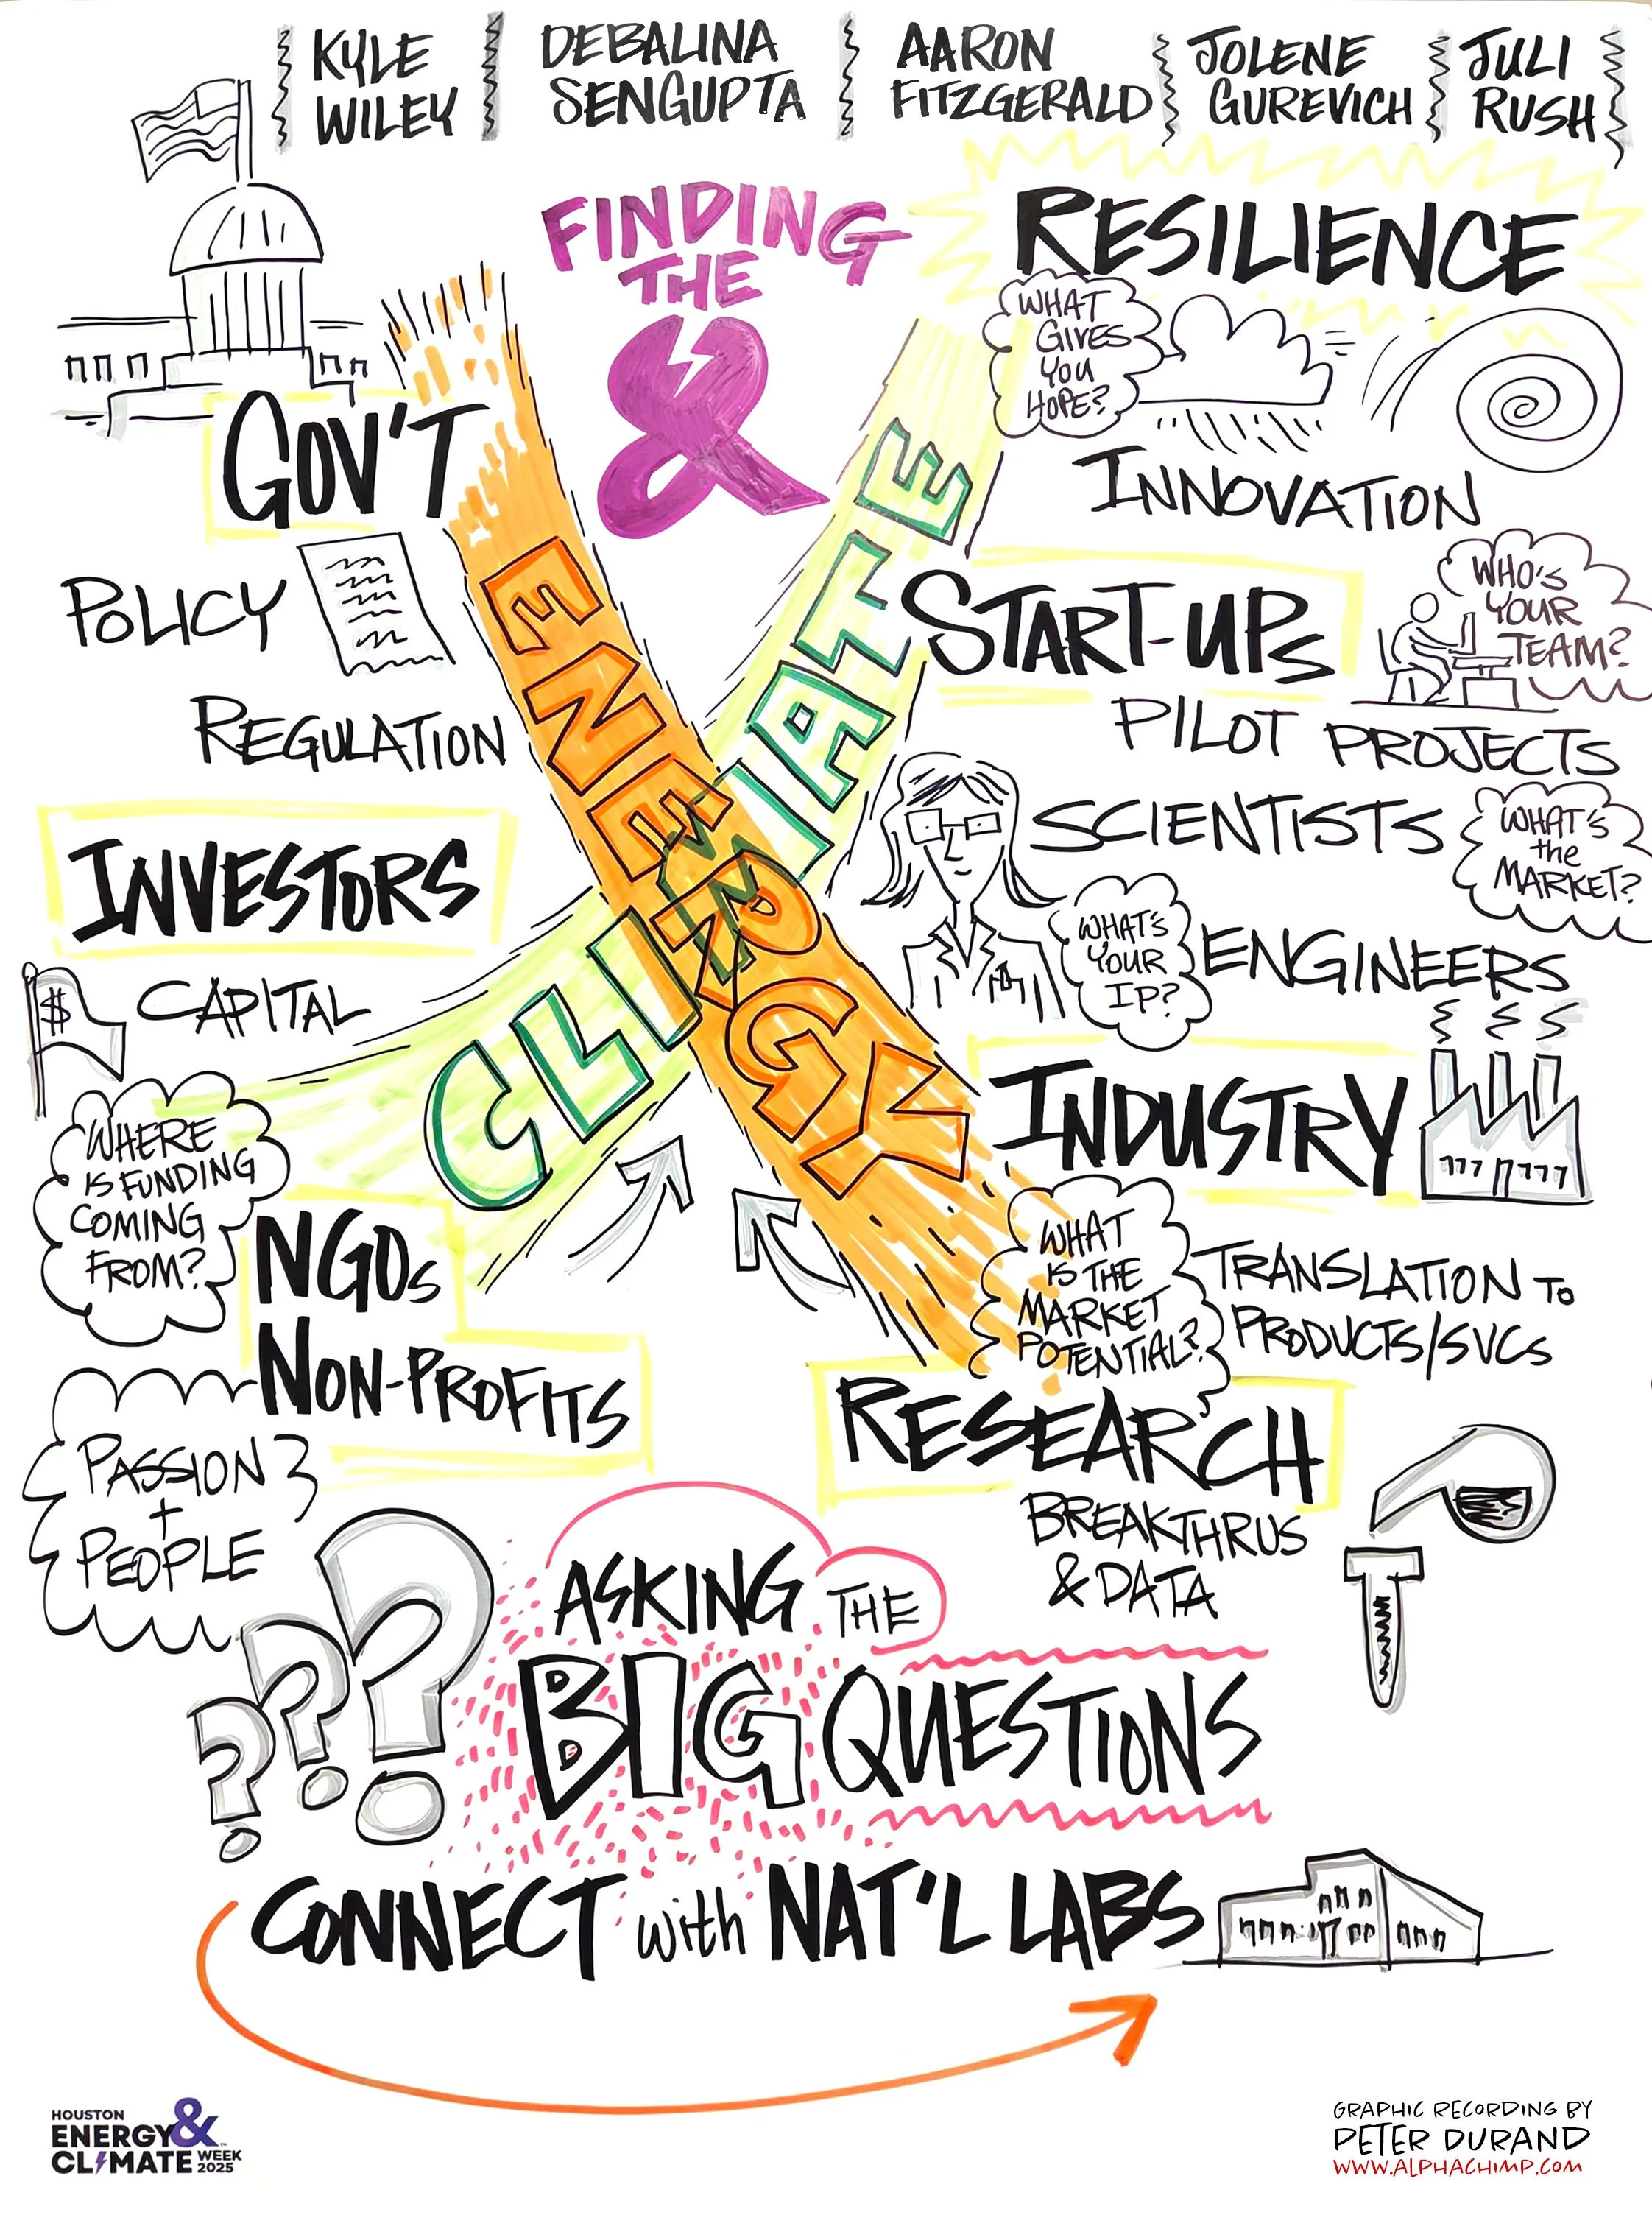 KYLE
WILEY
DEBALINA
SENGUPTA
AARON
FITZGERALD
JOLENE
GUREVICH
JULI
RUSH
FINDING
THE
&
RESILIENCE
WHAT
GIVES
YOU
HOPE?
INNOVATION
GOV'T
POLICY
REGULATION
ENERGY
CLIMATE
START-UPS
WHO'S
YOUR
TEAM?
PILOT PROJECTS
SCIENTISTS
WHAT'S
the
MARKET?
WHAT'S
YOUR
IP?
ENGINEERS
INVESTORS
$
CAPITAL
WHERE
IS FUNDING
COMING
FROM?
INDUSTRY
WHAT
IS THE
MARKET
POTENTIAL?
TRANSLATION TO
PRODUCTS/SVCS
NGOs
NON-PROFITS
PASSION
+
PEOPLE
RESEARCH
BREAKTHRUS
& DATA
???
ASKING THE
BIG QUESTIONS
CONNECT with NAT'L LABS
HOUSTON
ENERGY &
CLIMATE WEEK
2025
GRAPHIC RECORDING BY
PETER DURAND
WWW.ALPHACHIMP.COM